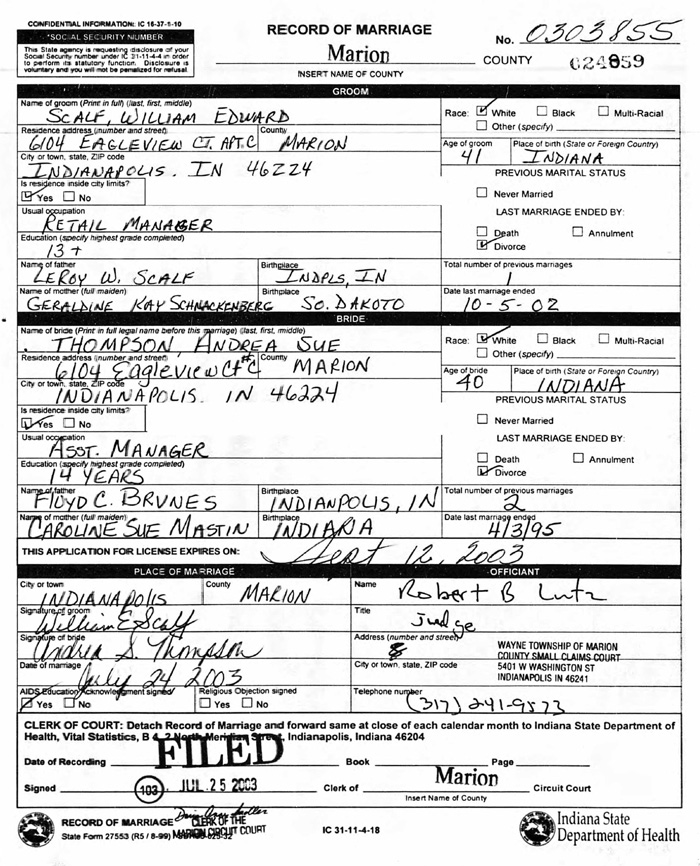 CONFIDENTIAL INFORMATION: IC 16-37-1-10
*SOCIAL SECURITY NUMBER
This State agency is requesting disclosure of your
Social Security number under IC 31-11-4-4 in order
to perform its statutory function. Disclosure is
voluntary and you will not be penalized for refusal.
RECORD OF MARRIAGE
Marion
INSERT NAME OF COUNTY
No. 0303855
COUNTY 024859
GROOM
Name of groom (Print in full) (last, first, middle)
SCALF, WILLIAM EDWARD
Race: White Black Multi-Racial
Other (specify)
Residence address (number and street) County
6104 EAGLEVIEW CT. APT. C MARION
Age of groom Place of birth (State or Foreign Country)
41 INDIANA
City or town, state, ZIP code
INDIANAPOLIS. IN 46224
PREVIOUS MARITAL STATUS
Is residence inside city limits?
Yes No
Never Married
LAST MARRIAGE ENDED BY:
Usual occupation
RETAIL MANAGER
Death Annulment
Divorce
Education (specify highest grade completed)
13+
Name of father Birthplace
LEROY W. SCALF INDPLS, IN
Total number of previous marriages
1
Name of mother (full maiden) Birthplace
GERALDINE KAY SCHNACKENBERG SO. DAKOTO
Date last marriage ended
10-5-02
BRIDE
Name of bride (Print in full legal name before this marriage) (last, first, middle)
THOMPSON, ANDREA SUE
Race: White Black Multi-Racial
Other (specify)
Residence address (number and street) County
6104 Eagleview Ct #C MARION
Age of bride Place of birth (State or Foreign Country)
40 INDIANA
City or town, state, ZIP code
INDIANAPOLIS. IN 46224
PREVIOUS MARITAL STATUS
Is residence inside city limits?
Yes No
Never Married
LAST MARRIAGE ENDED BY:
Usual occupation
ASST. MANAGER
Death Annulment
Divorce
Education (specify highest grade completed)
14 YEARS
Name of father Birthplace
FLOYD C. BRUNES INDIANPOLIS, IN
Total number of previous marriages
2
Name of mother (full maiden) Birthplace
CAROLINE SUE MASTIN INDIARIA
Date last marriage ended
4/3/95
THIS APPLICATION FOR LICENSE EXPIRES ON: Sept 12, 2003
PLACE OF MARRIAGE
OFFICIANT
City or town County
INDIANAPOLIS MARION
Name
Robert B Lutz
Signature of groom
William E Scalf
Title
Judge
Signature of bride
Andrea S. Thompson
Address (number and street)
WAYNE TOWNSHIP OF MARION
COUNTY SMALL CLAIMS COURT
5401 W WASHINGTON ST
INDIANAPOLIS IN 46241
Date of marriage
July 24 2003
City or town, state, ZIP code
AIDS Education Acknowledgment signed Religious Objection signed
Yes No Yes No
Telephone number
(317) 241-9573
CLERK OF COURT: Detach Record of Marriage and forward same at close of each calendar month to Indiana State Department of
Health, Vital Statistics, B 4, 2 North Meridian Street, Indianapolis, Indiana 46204
FILED
Date of Recording Book Page
103 JUL 25 2003
Signed Clerk of Marion Circuit Court
Insert Name of County
RECORD OF MARRIAGE
State Form 27553 (R5 / 8-99)
CLERK OF THE
MARION CIRCUIT COURT
IC 31-11-4-18
Indiana State
Department of Health